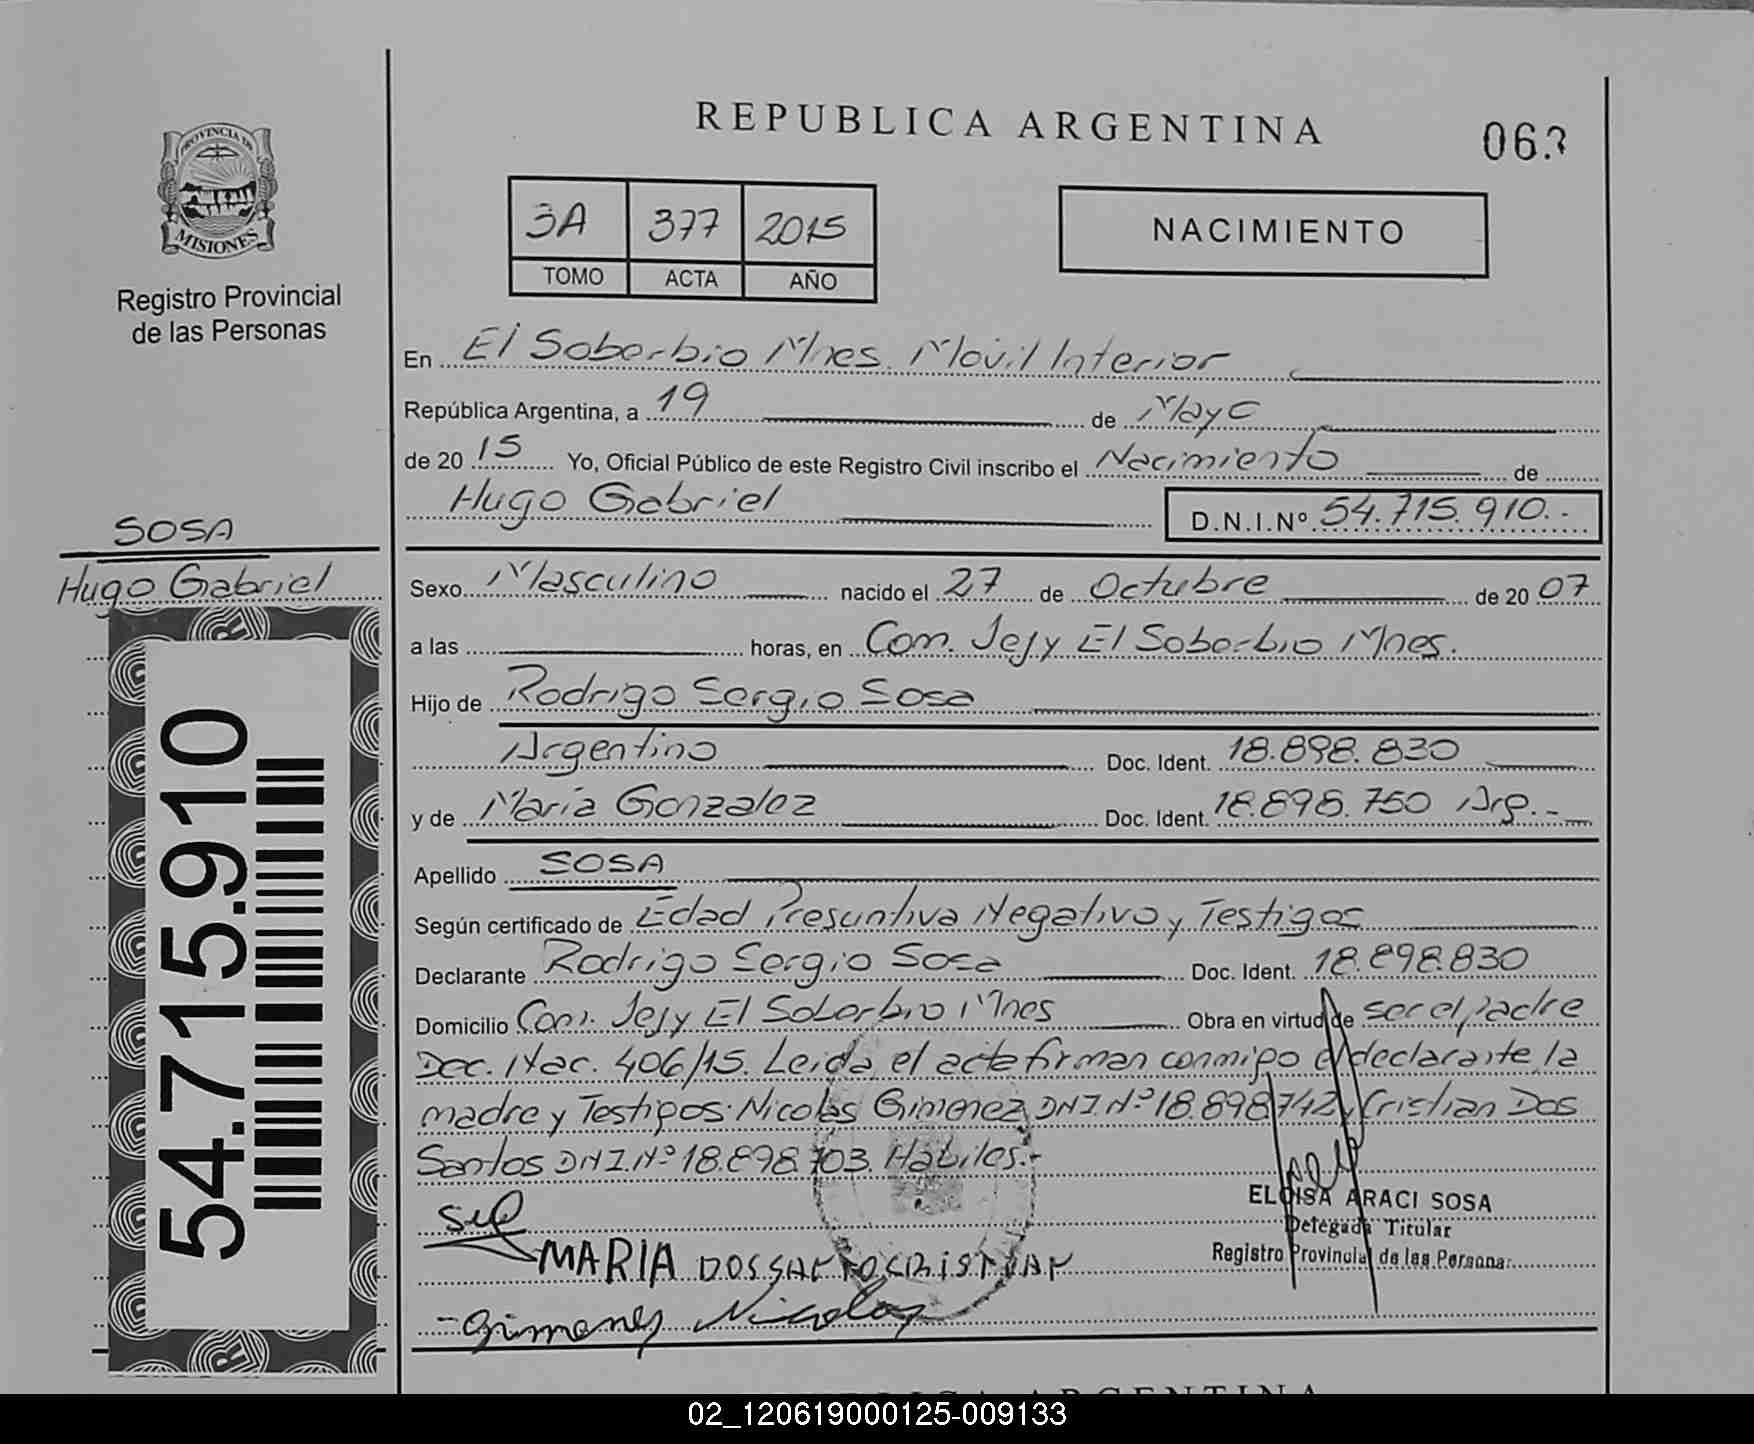 PROVINCIA DE
MISIONES
Registro Provincial
de las Personas
SOSA
Hugo Gabriel
54.715.910
REPUBLICA ARGENTINA
063
3A 377 2015
TOMO ACTA AÑO
NACIMIENTO
En El Soberbio Mnes. Móvil Interior
República Argentina, a 19 de Mayo
de 20 15 Yo, Oficial Público de este Registro Civil inscribo el Nacimiento de
Hugo Gabriel D.N.I.Nº 54.715.910.-
Sexo Masculino nacido el 27 de Octubre de 20 07
a las horas, en Com. Jejy El Soberbio Mnes.
Hijo de Rodrigo Sergio Sosa
Argentino Doc. Ident. 18.898.830
y de María Gonzalez Doc. Ident. 18.898.750 Arg.-
Apellido SOSA
Según certificado de Edad Presuntiva Negativo y Testigos
Declarante Rodrigo Sergio Sosa Doc. Ident. 18.898.830
Domicilio Com. Jejy El Soberbio Mnes Obra en virtud de ser el padre
Dec. Nac. 406/15. Leida el acta firman conmigo el declarante, la
madre y Testigos: Nicolas Gimenez DNI Nº 18.898.742 y Cristian Dos
Santos DNI Nº 18.898.703. Hábiles.-
ELOISA ARACI SOSA
Delegada Titular
Registro Provincial de las Personas
MARIA DOSSANTOCRISTIAN
Gimenes Nicolas
REPUBLICA ARGENTINA
02_120619000125-009133